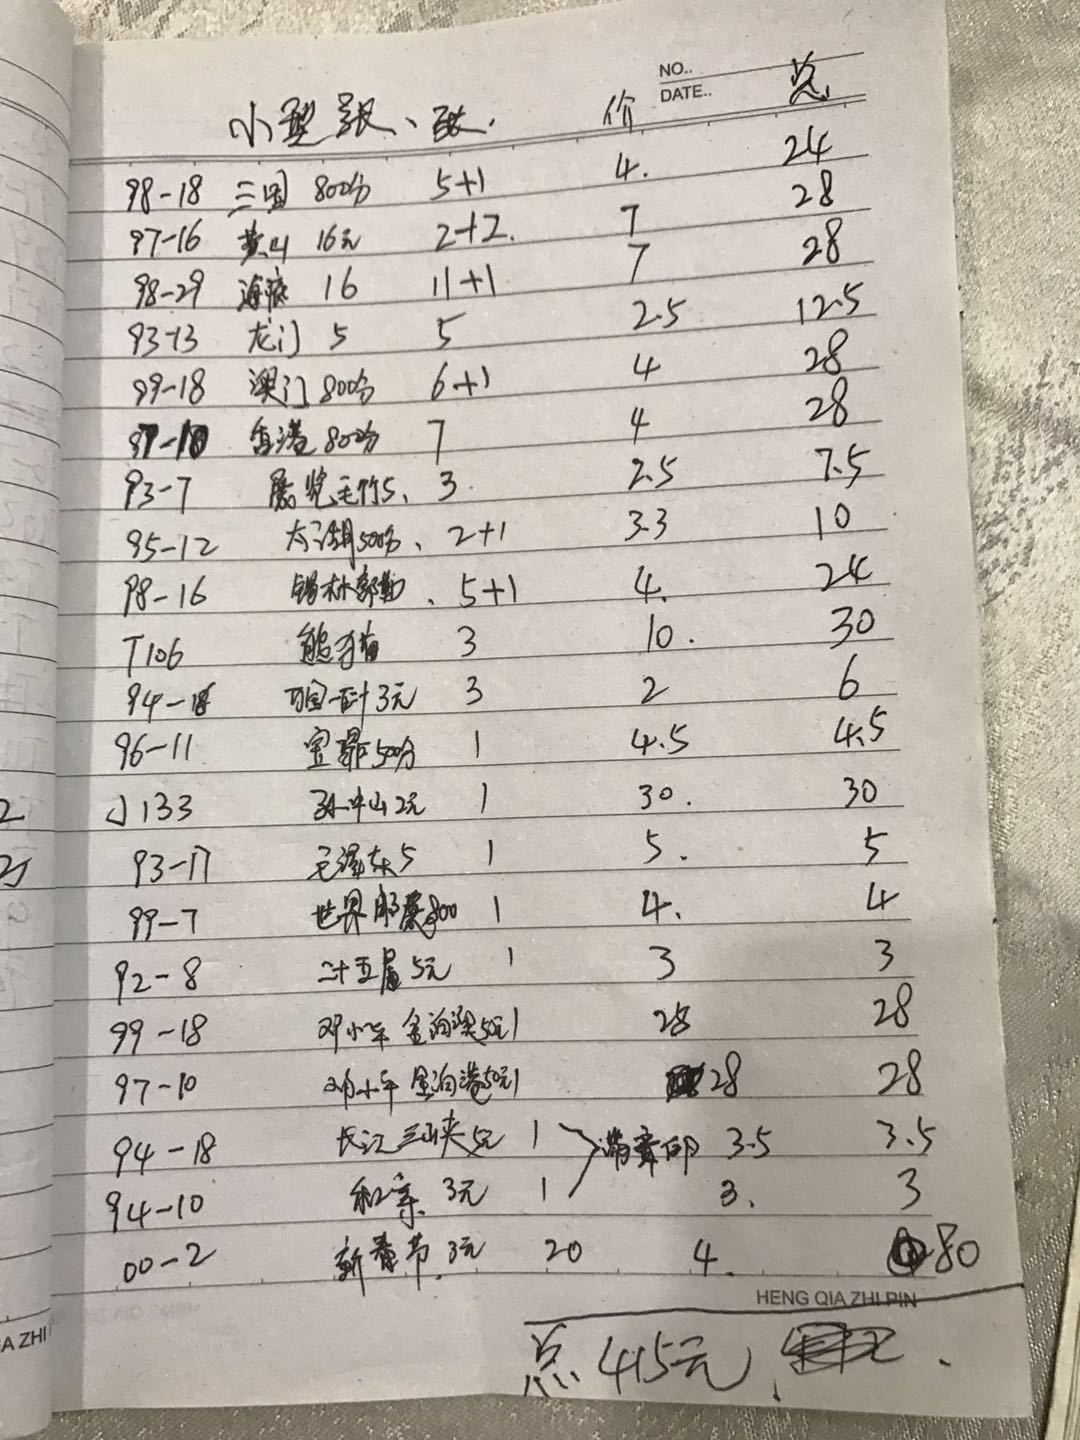 NO..
DATE..
小型张、张. 价 总
98-18 三国 800分 5+1 4. 24
97-16 黄山 16元 2+2. 7 28
98-29 海底 16 11+1 7 28
93-13 龙门 5 5 2.5 12.5
99-18 澳门 800分 6+1 4 28
97-10 香港 800分 7 4 28
93-7 展览毛竹5、 3. 2.5 7.5
95-12 太湖500分、 2+1 3.3 10
98-16 锡林郭勒、 5+1 4. 24
T106 熊猫 3 10. 30
94-18 3元 3 2 6
96-11 宝鼎500分 1 4.5 4.5
J133 孙中山2元 1 30. 30
93-17 毛泽东5 1 5. 5
99-7 世界 800 1 4. 4
92-8 二十五届5元 1 3 3
99-18 邓小平 金泊澳50元1 28 28
97-10 邓小平 金泊港50元1 28 28
94-18 长江三峡5元 1 3.5 3.5
94-10 和亲 3元 1 3. 3
00-2 新春节.3元 20 4. 80
HENG QIA ZHI PIN
QIA ZHI
总 415元